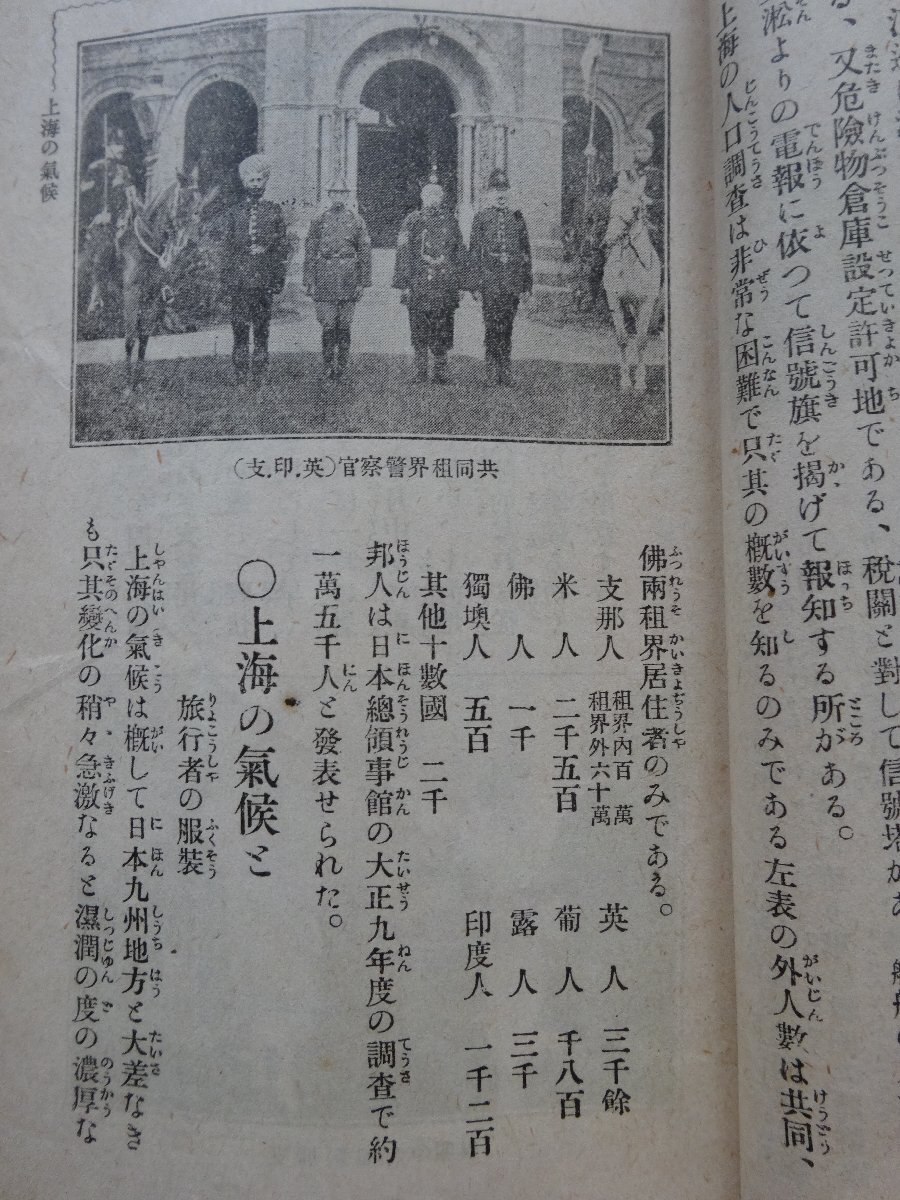 る、又危險物倉庫設定許可地である、稅關と對して信號塔があ
淞よりの電報に依つて信號旗を揭げて報知する所がある。
上海の人口調査は非常な困難で只其の槪數を知るのみである左表の外人數は共同、
上海の氣候
共同租界警察官(英.印.支)
佛兩租界居住者のみである。
支那人 租界內百萬 租界外六十萬 英人 三千餘
米人 二千五百 葡人 千八百
佛人 一千 露人 三千
獨墺人 五百 印度人 一千二百
其他十數國 二千
邦人は日本總領事館の大正九年度の調査で約
一萬五千人と發表せられた。
〇上海の氣候と
旅行者の服裝
上海の氣候は槪して日本九州地方と大差なき
も只其變化の稍々急激なると濕潤の度の濃厚な